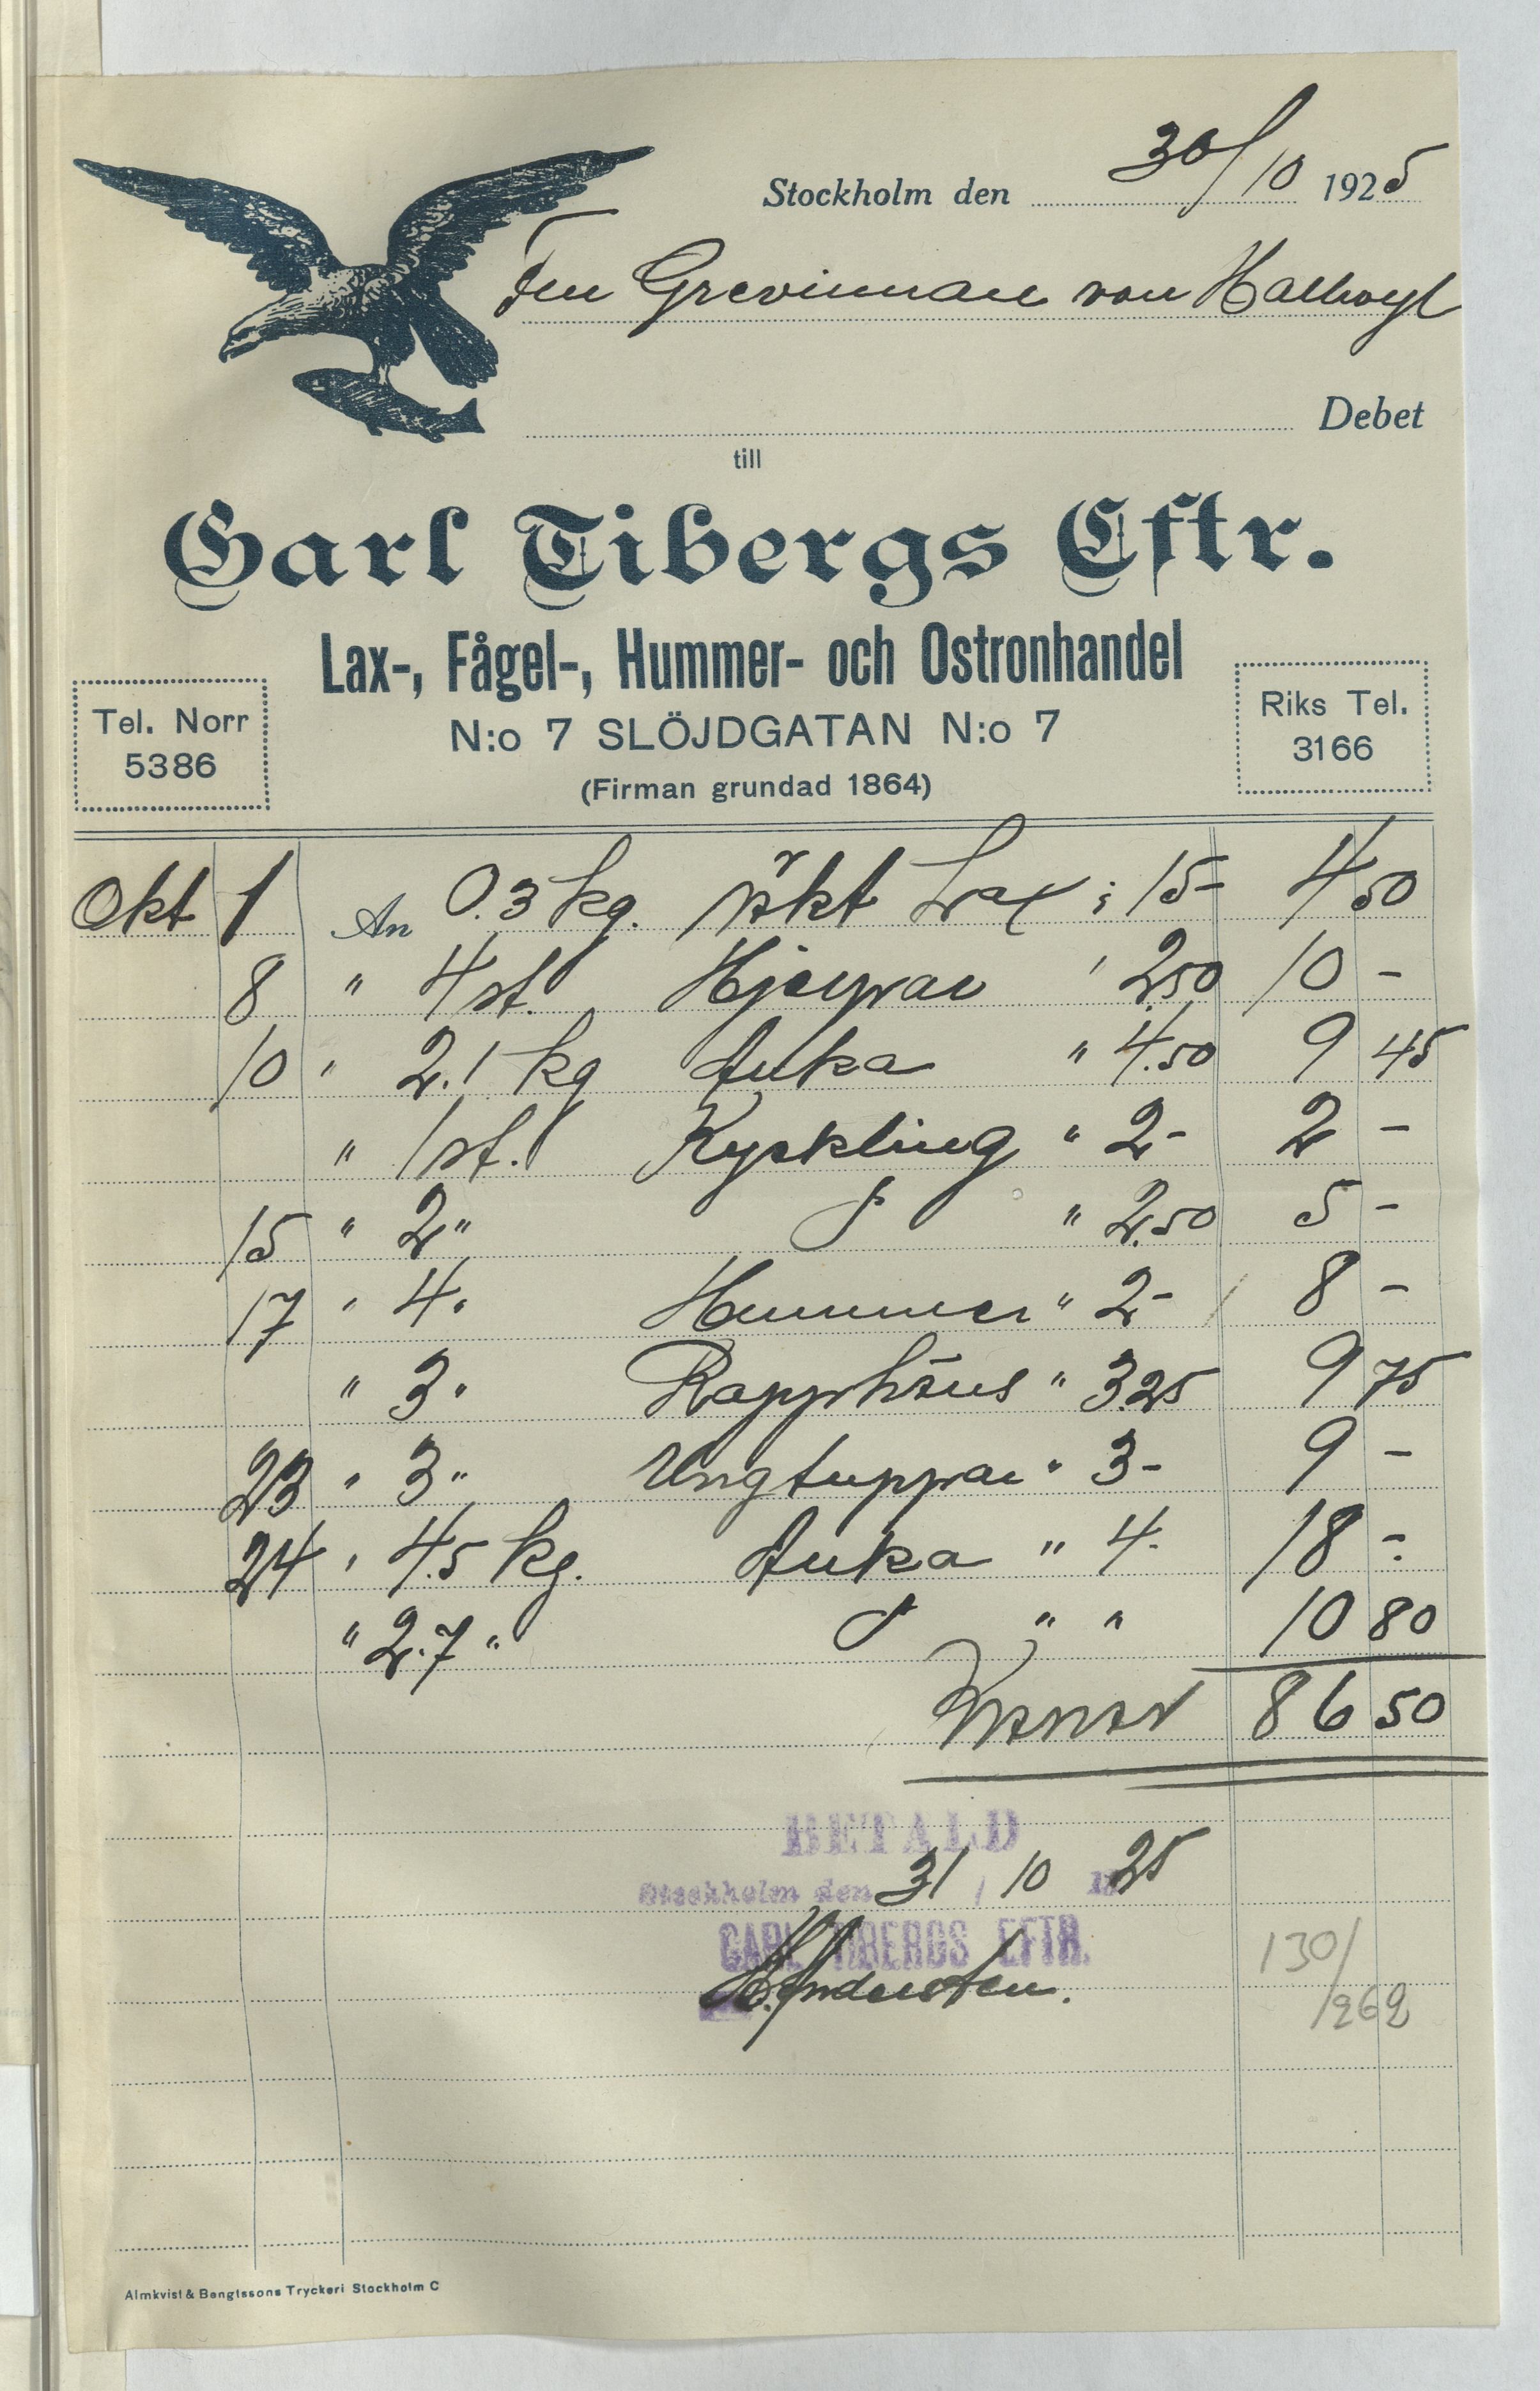 Stockholm den 30/10 1925
Fru Grevinnan von Hallwyl
Debet
till
Carl Tibergs Eftr.
Lax-, Fågel-, Hummer- och Ostronhandel
Tel. Norr 5386
N:o 7 SLÖJDGATAN N:o 7
Riks Tel. 3166
(Firman grundad 1864)
Okt 1 An 0.3 kg. rökt Lax ; 15- 4 50
8 " 4 st. Hjerpar ' 2.50 10 -
10 " 2.1 kg Anka " 4.50 9 45
" 1 st. Kyckling " 2- 2 -
15 " 2 " d " 2.50 5 -
17 " 4 " Hummer " 2- 8 -
" 3 " Rapphöns " 3.25 9 75
23 " 3 " Ungtuppar " 3- 9 -
24 " 4.5 kg. Anka " 4- 18 -
" 2.7 " d " " 10 80
Kronor 86 50
BETALD
Stockholm den 31/10 1925
CARL TIBERGS EFTR.
Andersson.
130/
1262
Almkvist & Bengtssons Tryckeri Stockholm C